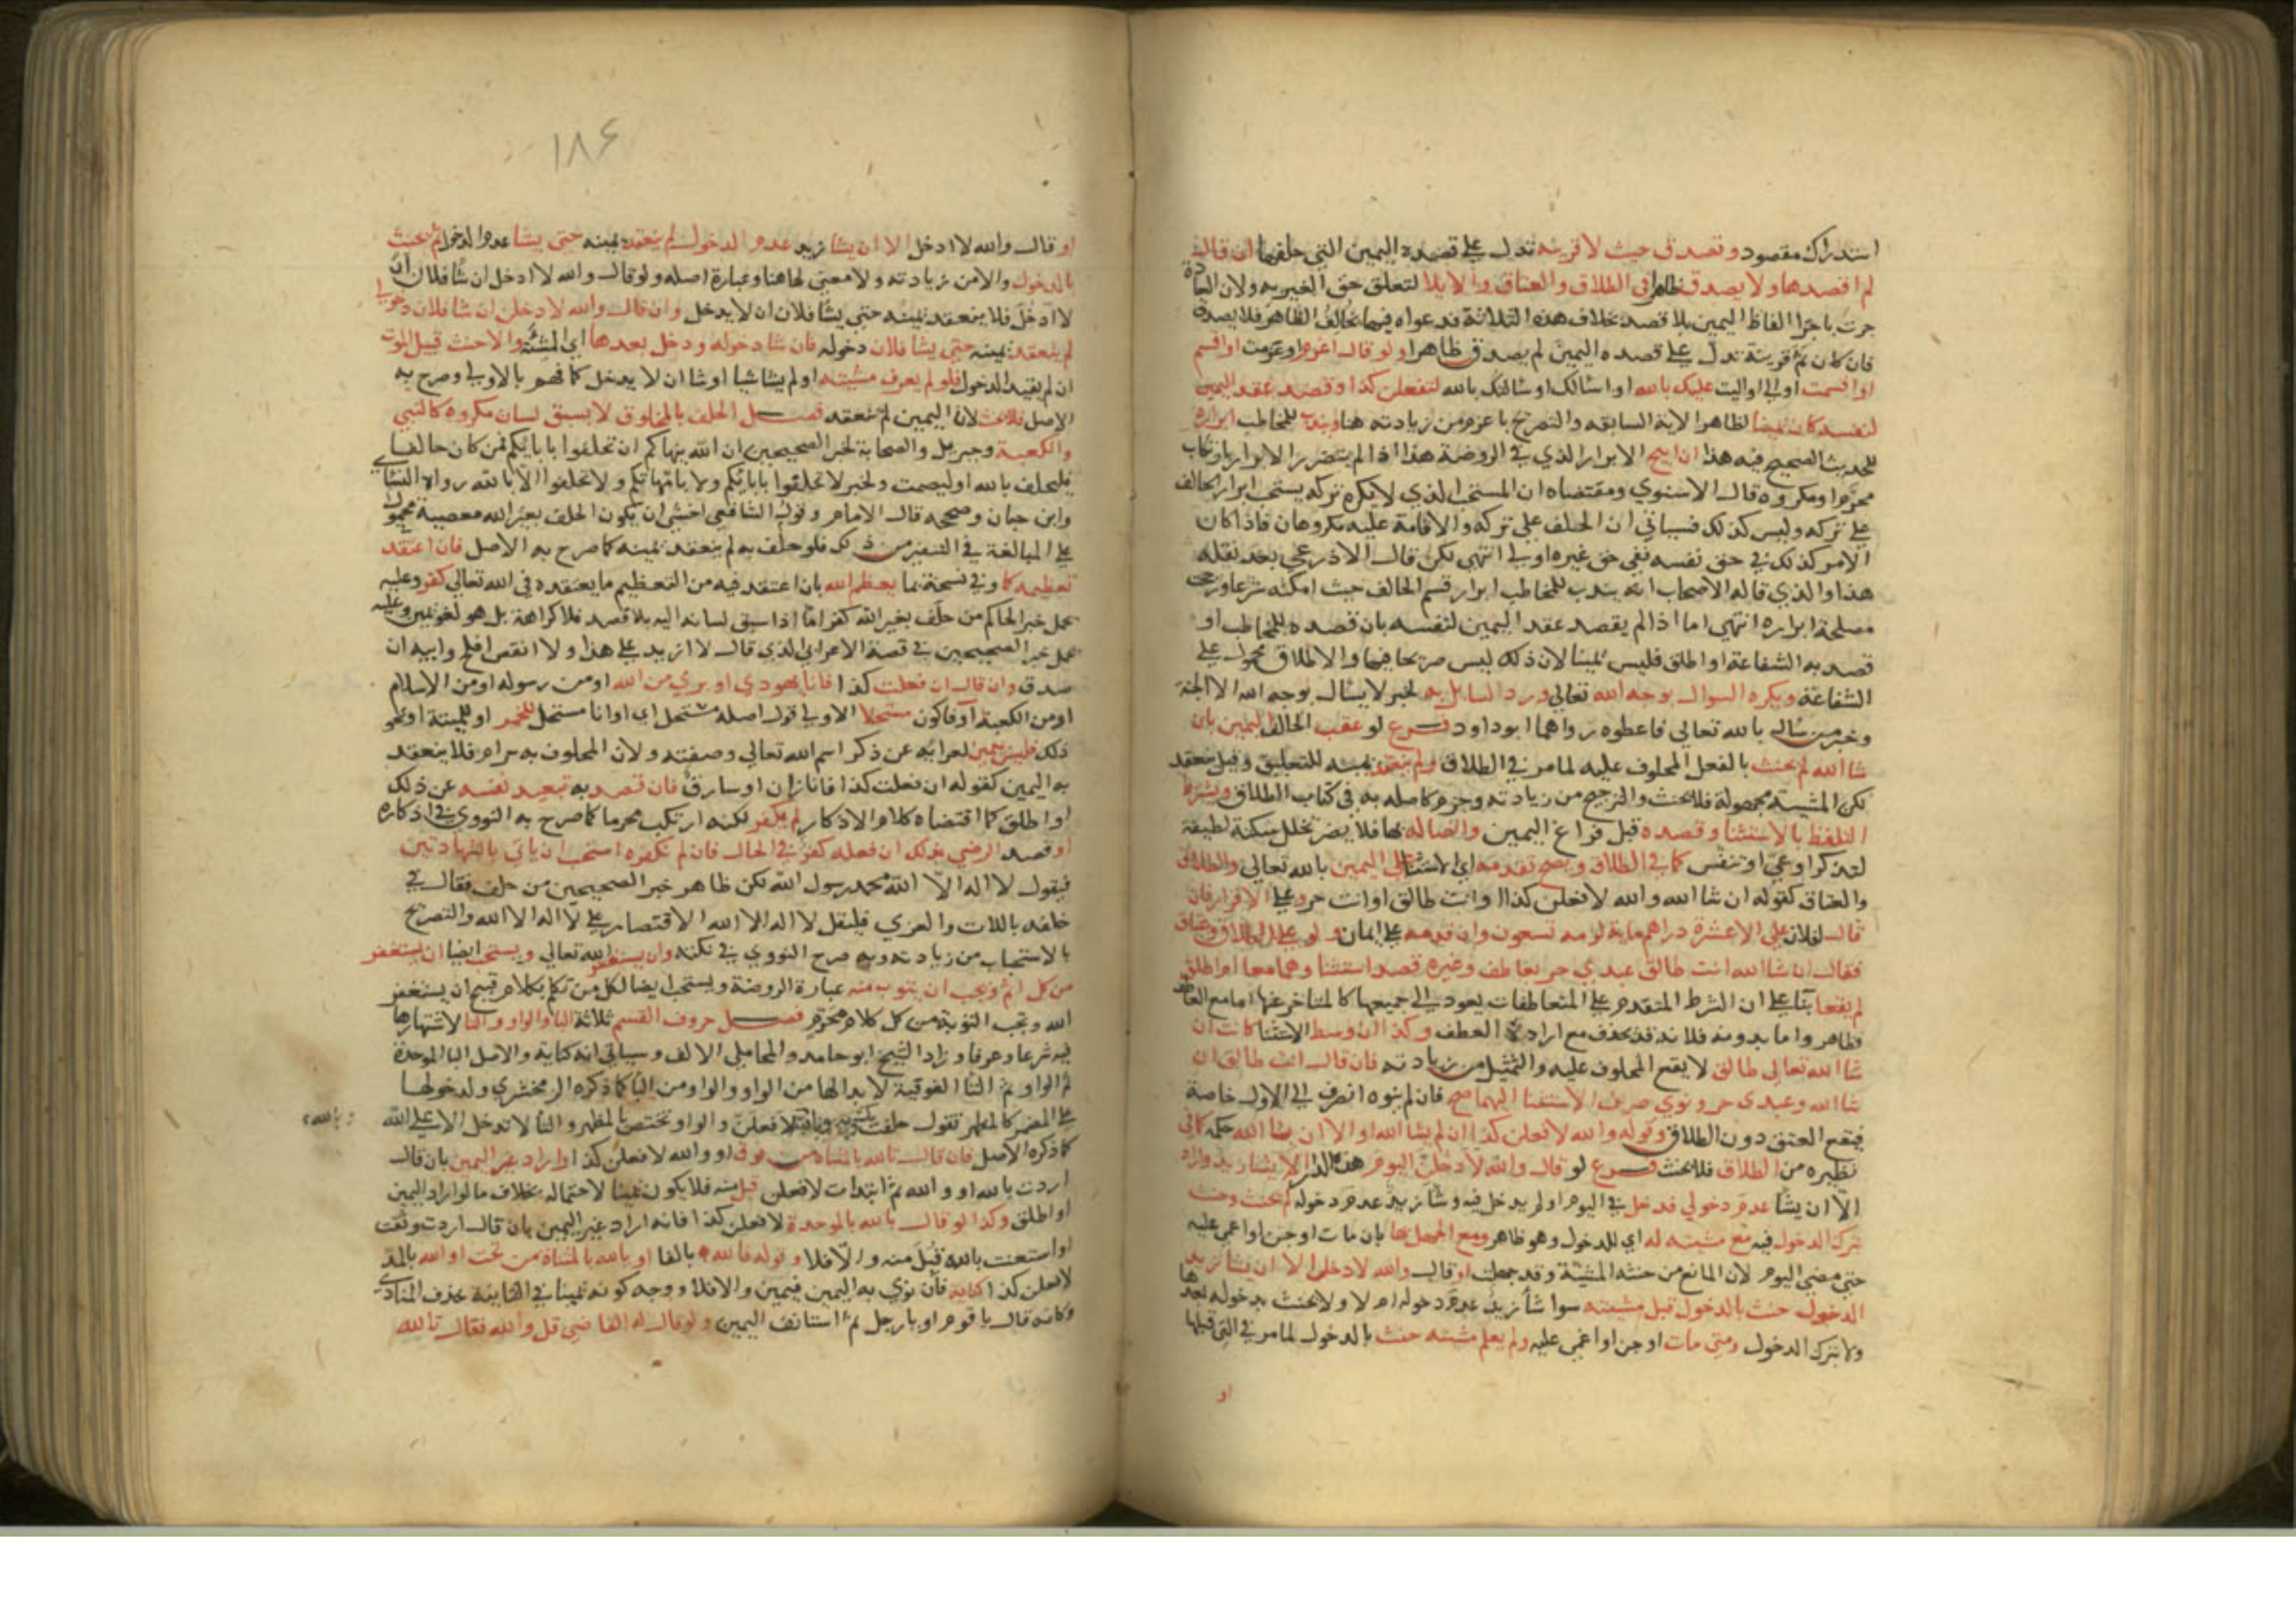 استدراك مقصود وتصدق حيث لا قرينة تدل على قصده اليمين التي حلفها ان قال
لم اقصدها ولا يصدق ظاهرا في الطلاق والعتاق والايلا لتعلق حق الغير به ولان العادة
جرت باجرا الفاظ اليمين بلا قصد بخلاف هذه الثلاثة فدعواه فيها تخالف الظاهر فلا يصدق
فان كان ثم قرينة تدل على قصده اليمين لم يصدق ظاهرا ولو قال اعزم او عزمت او اقسم
او اقسمت او الي او اليت عليك بالله او اسالك او سالتك بالله لتفعلن كذا وقصد عقد اليمين
لنفسه كان يمينا لظاهر الاية السابقه والتصريح باعزم من زيادته هنا ويندب للمخاطب ابراره
للحديث الصحيح فيه هذا ان ابيح الابرار الذي في الروضة هذا اذا لم يتضرر الابرار بارتكاب
محرم او مكروه قال الاسنوي ومقتضاه ان المستحب الذي لا يكره تركه يستحب ابرار الحالف
على تركه وليس كذلك فسياتي ان الحلف على تركه والاقامة عليه مكروهان فاذا كان
الامر كذلك في حق نفسه ففي حق غيره اولى انتهى لكن قال الاذرعي بعد نقله
هذا والذي قاله الاصحاب انه يندب للمخاطب ابرار قسم الحالف حيث امكنه شرعا ورجحت
مصلحة ابراره انتهي اما اذا لم يقصد عقد اليمين لنفسه بان قصده للمخاطب او
قصد به الشفاعة او اطلق فليس يمينا لان ذلك ليس صريحا فيها والاطلاق محمول على
الشفاعة ويكره السوال بوجه الله تعالى ورد السايل به لخبر لا يسال بوجه الله الا الجنة
وخبر من سال بالله تعالى فاعطوه رواهما ابو داود فرع لو عقب الحالف اليمين بان
شا الله لم يحنث بالفعل المحلوف عليه لما مر في الطلاق ولم تنعقد يمينه للتعليق وقيل تنعقد
لكن المشية مجهولة فلا يحنث والترجيح من زيادته وجزم كاصله به في كتاب الطلاق ويشترط
التلفظ بالاستثنا وقصده قبل فراغ اليمين واتصاله بها فلا يضر تخلل سكتة لطيفة
لتذكر او عي او تنفس كما في الطلاق ويصح تقدمه اي الاستثنا على اليمين بالله تعالى والطلاق
والعتاق كقوله ان شا الله والله لافعلن كذا او انت طالق او انت حر وعلى الاقرار فان
قال لفلان علي الا عشرة دراهم ماية لزمه تسعون وان قدمه على ايمان ولو على الطلاق وعتاق
فقال ان شا الله انت طالق عبدي حر بعاطف وغيره قصد استثنا وهما معا او اطلق
لم يقعا بنا على ان الشرط المتقدم على المتعاطفات يعود الى جميعها كالمتاخر عنها اما مع العاطف
فظاهر واما بدونه فلانه قد يحذف مع ارادة العطف وكذا ان وسط الاستثنا كانت ان
شا الله تعالى طالق لا يقع المحلوف عليه والتمثيل من زيادته فان قال انت طالق ان
شا الله وعبدي حر ونوي صرف الاستثنا اليهما صح فان لم ينوه انصرف الى الاول خاصة
فيقع العتق دون الطلاق وقوله والله لافعلن كذا ان لم يشا الله او الا ان يشا الله حكمه كما في
نظيره من الطلاق فلا يحنث فرع لو قال والله لادخلن اليوم هذه الدار الا ان يشا زيد واراد
الا ان يشا عدم دخولي فدخل في اليوم او لم يدخل فيه وشا زيد عدم دخوله لم يحنث وحنث
بترك الدخول فيه مع مشيته له اي للدخول وهو ظاهر ومع الجهل بها بان مات او جن او اغمي عليه
حتى مضى اليوم لان المانع من حنثه المشية وقد جهلت او قال والله لا دخل الا ان يشا زيد
الدخول حنث بالدخول قبل مشيته سوا شا زيد عدم دخوله ام لا ولا يحنث بدخوله بعدها
ولا بترك الدخول ومتى مات او جن او اغمي عليه ولم يعلم مشيته حنث بالدخول لما مر في التي قبلها
او
١٨۶
او قال والله لا ادخل الا ان يشا زيد عدم الدخول لم ينعقد يمينه حتى يشا عدم الدخول ثم يحنث
بالدخول والا من زيادته ولا معنى لها هنا وعبارة اصله ولو قال والله لا ادخل ان شا فلان ان
لا ادخل فلا ينعقد يمينه حتى يشا فلان ان لا يدخل وان قال والله لادخلن ان شا فلان دخولي
لم ينعقد يمينه حتى يشا فلان دخوله فان شا دخوله ودخل بعدها اي المشية والا حنث قبيل الموت
ان لم يقيد الدخول فلو لم يعرف مشيته او لم يشا شيا او شا ان لا يدخل كما فهم بالاولى وصرح به
الاصل فلا حنث لان اليمين لم تنعقد فصل الحلف بالمخلوق لا بسبق لسان مكروه كالنبي
والكعبة وجبريل والصحابة لخبر الصحيحين ان الله ينهاكم ان تحلفوا بابائكم فمن كان حالفا
فليحلف بالله او ليصمت ولخبر لا تحلفوا بابائكم ولا بامهاتكم ولا تحلفوا الا بالله رواه النسائي
وابن حبان وصححه قال الامام وقول الشافعي اخشى ان يكون الحلف بغير الله معصية محمول
على المبالغة في التنفير من ذلك فلو حلف به لم ينعقد يمينه كما صرح به الاصل فان اعتقد
تعظيمه كما وفي نسخة بما يعظم الله بان اعتقد فيه من التعظيم ما يعتقده في الله تعالى كفر وعليه
يحمل خبر الحاكم من حلف بغير الله كفر اما اذا سبق لسانه اليه بلا قصد فلا كراهة بل هو لغو يمين وعليه
يحمل خبر الصحيحين في قصة الاعرابي الذي قال لا ازيد على هذا ولا انقص افلح وابيه ان
صدق وان قال ان فعلت كذا فانا يهودي او بري من الله او من رسوله او من الاسلام
او من الكعبة او فاكون مستحلا الاولى قول اصله مستحل اي او انا مستحل للخمر او للميتة او نحو
ذلك فليس بيمين لعرائه عن ذكر اسم الله تعالى وصفته ولان المحلوف به حرام فلا ينعقد
به اليمين كقوله ان فعلت كذا فانا زان او سارق فان قصد به تبعيد نفسه عن ذلك
او اطلق كما اقتضاه كلام الاذكار لم يكفر لكنه ارتكب محرما كما صرح به النووي في اذكاره
او قصد الرضي بذلك ان فعله كفر في الحال فان لم نكفره استحب ان ياتي بالشهادتين
فيقول لا اله الا الله محمد رسول الله لكن ظاهر خبر الصحيحين من حلف فقال في
حلفه باللات والعزي فليقل لا اله الا الله الاقتصار على لا اله الا الله والتصريح
بالاستحباب من زيادته وبه صرح النووي في نكته وان يستغفر الله تعالى ويستحب ايضا ان يستغفر
من كل اثم ويجب ان يتوب منه عبارة الروضة ويستحب ايضا لكل من تكلم بكلام قبيح ان يستغفر
الله وتجب التوبة من كل كلام محرم فصل حروف القسم ثلاثة البا والواو والتا لاشتهارها
فيه شرعا وعرفا وزاد الشيخ ابو حامد والمحاملي الالف وسياتي انه كناية والاصل البا الموحدة
ثم الواو ثم التا الفوقية لابدالها من الواو والواو من البا كما ذكره الزمخشري ولدخولها
على المضمر كالمظهر تقول حلفت لافعلن والواو تختص بالمظهر والتا لا تدخل الا على الله
كما ذكره الاصل فان قال تالله بالمثناة من فوق او والله لافعلن كذا واراد غير اليمين بان قال
اردت بالله او والله ثم ابتدات لافعلن قبل منه فلا يكون يمينا لاحتماله بخلاف ما لو اراد اليمين
او اطلق وكذا لو قال بالله بالموحدة لافعلن كذا فانه اراد غير اليمين بان قال اردت وثقت
او استعنت بالله قبل منه والا فلا وقوله فالله بالفا او يالله بالمثناة من تحت او آلله بالمد
لافعلن كذا كناية فان نوي به اليمين فيمين والا فلا ووجه كونه يمينا في الثانية بحذف المنادى
وكانه قال يا قوم او يا رجل ثم استانف اليمين ولو قال له القاضي قل والله فقال تالله